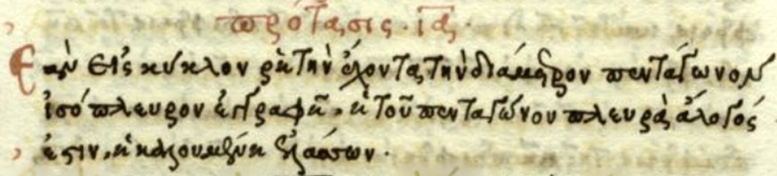 πρότασις · ια ·
Εὰν εἰς κύκλον ῥητὴν ἔχοντα τὴν διάμετρον πεντάγωνον
ἰσόπλευρον ἐγγραφῆ, ἡ τοῦ πενταγώνου πλευρὰ ἄλογός
ἐστιν, ἡ καλουμένη ἐλάσσων ·